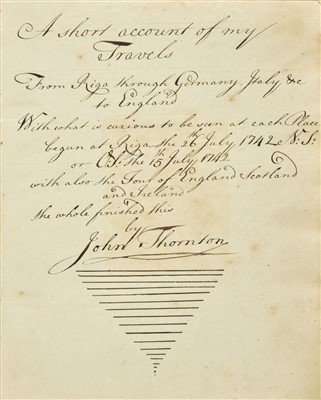 A short account of my
Travels
From Riga through Germany, Italy &c
to England
With what is curious to be seen at each Place
begun at Riga the 26th July 1742 N: S:
or O: S: the 15th July 1742
with also the Tour of England Scotland
and Ireland
the whole finished this
by
John Thornton